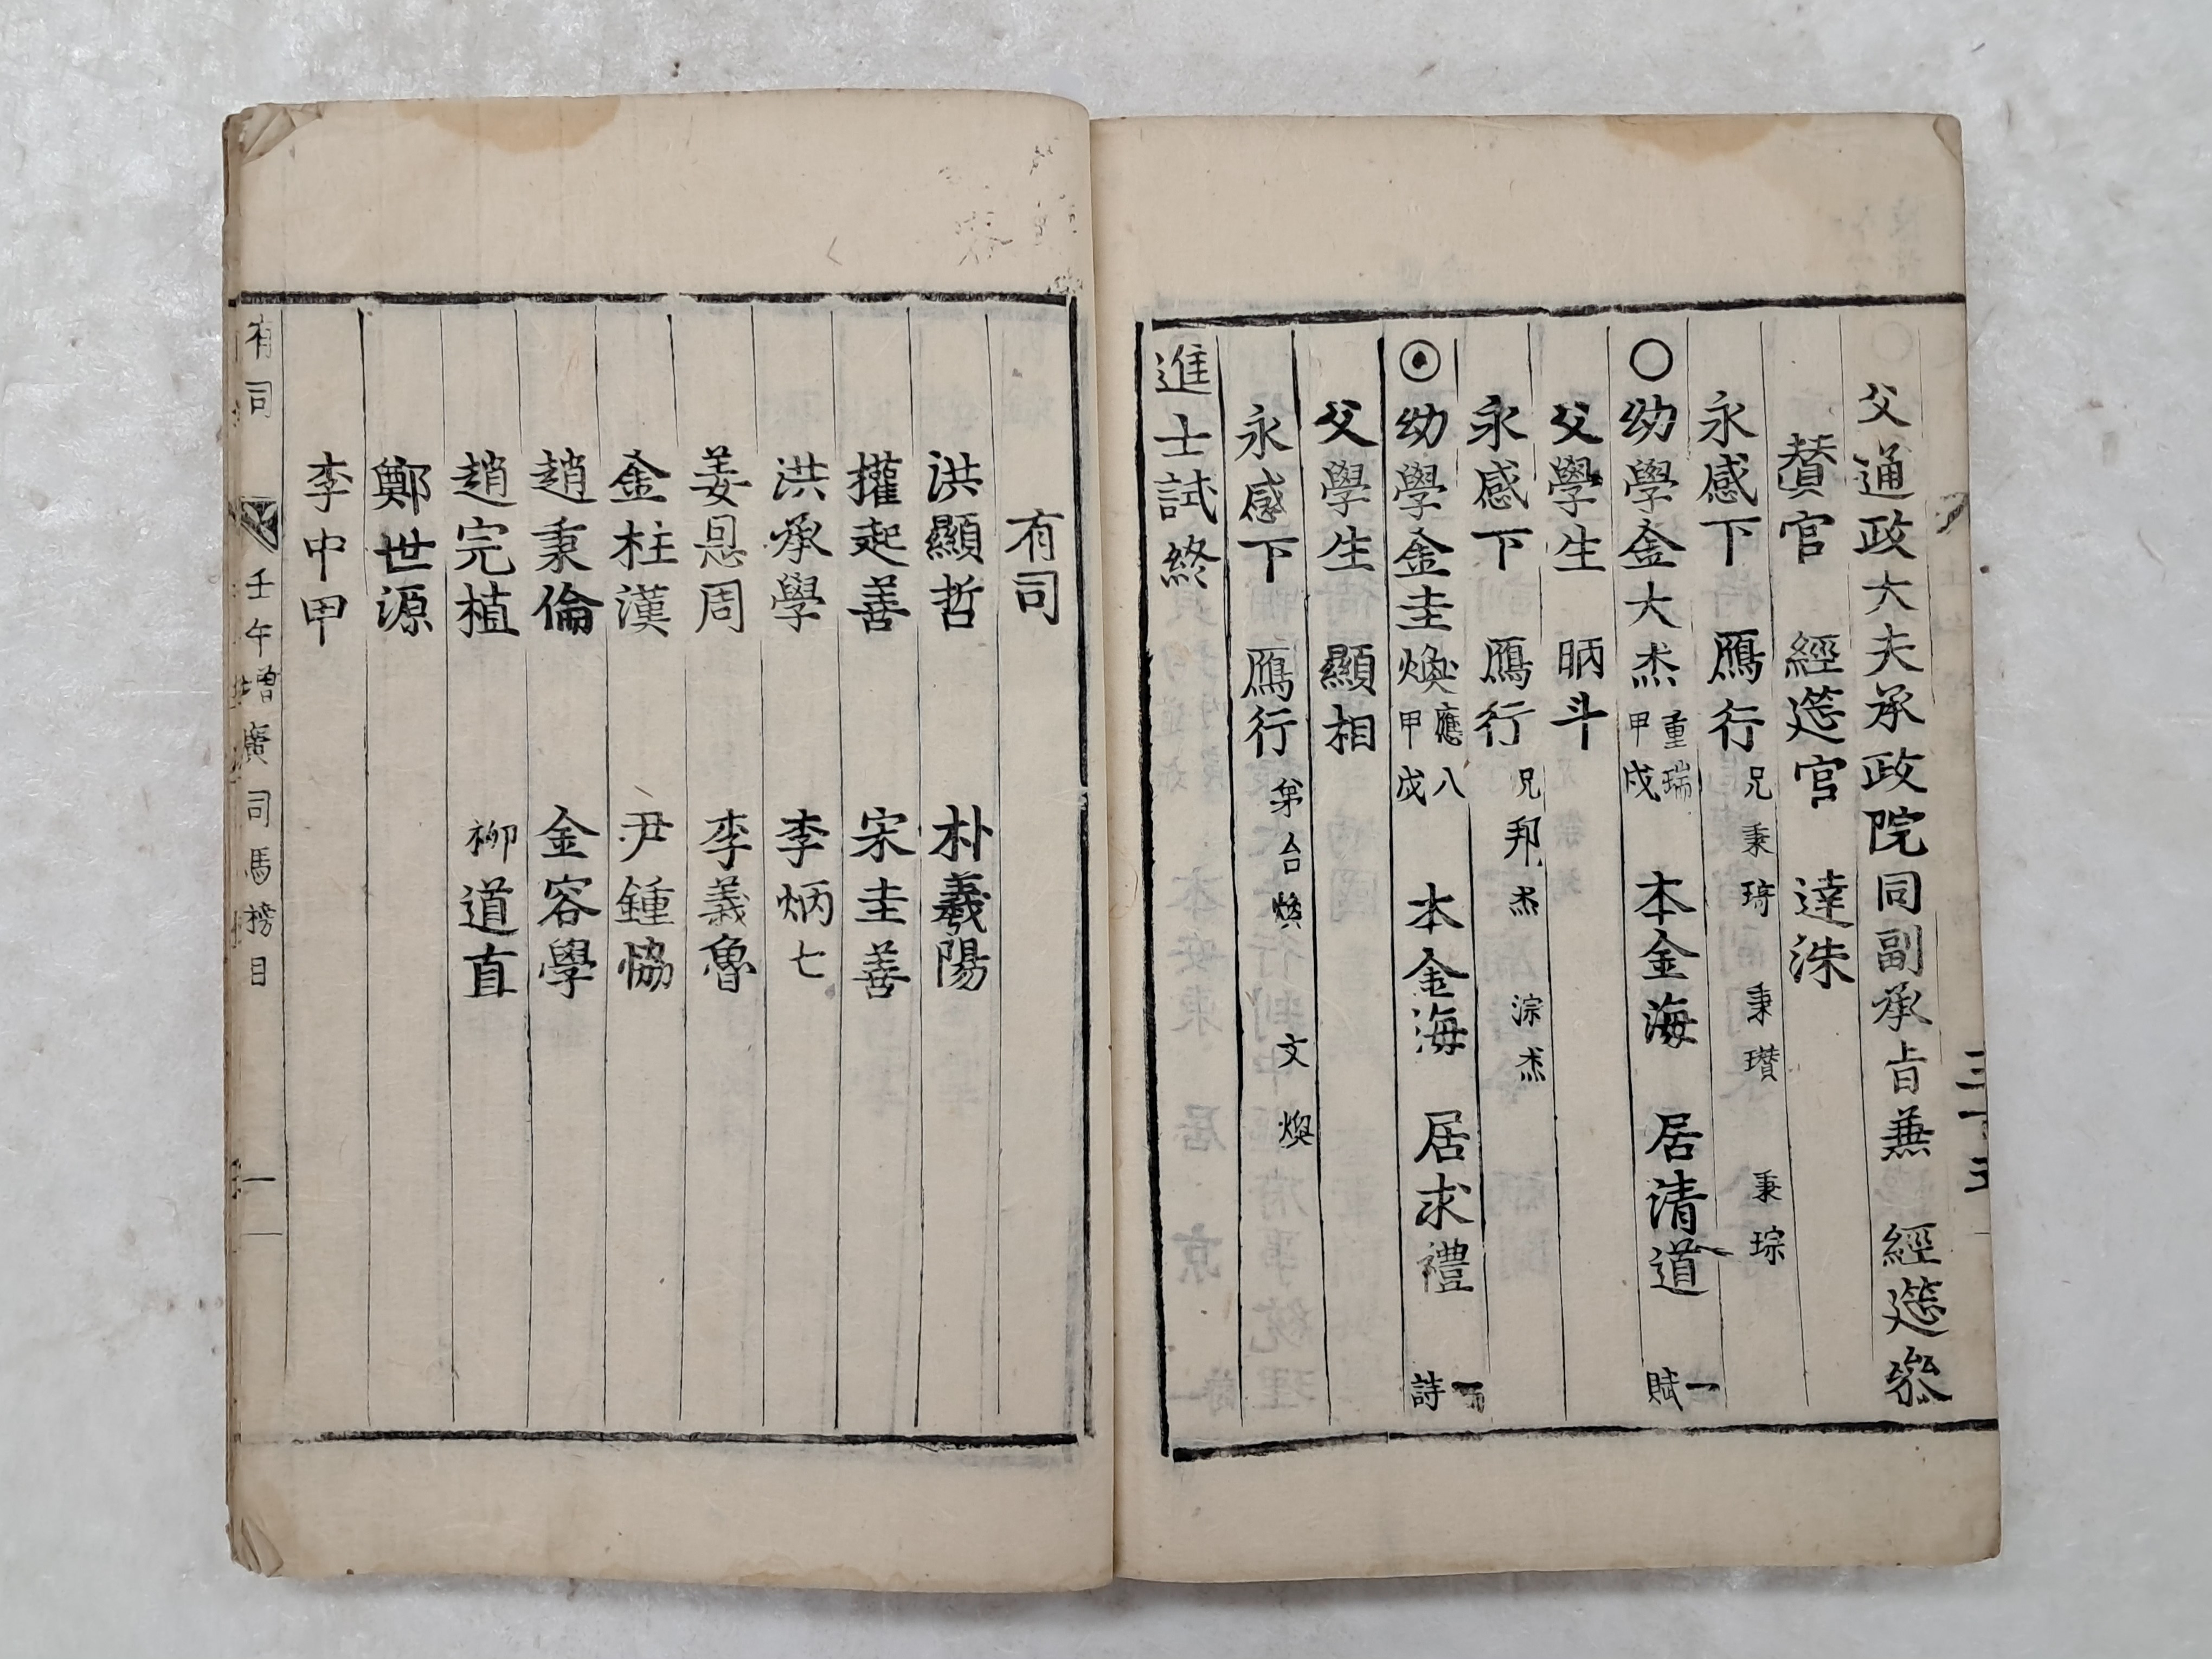 父通政大夫承政院同副承旨兼 經筵參
贊官 經筵官 達洙
永感下 鴈行 兄秉琦 秉瓚 秉琮
○幼學金大杰 重瑞 甲戌 本金海 居清道 一賦
父學生 昞斗
永感下 鴈行 兄邦杰 淙杰
幼學金圭煥 應八 甲戌 本金海 居求禮 一詩
父學生 顯相
永感下 鴈行 弟台煥 文煥
進士試終
三十五
有司
洪顯哲 朴羲陽
權起善 宋圭善
洪承學 李炳七
姜思周 李義魯
金柱漢 尹鍾協
趙秉倫 金容學
趙完植 柳道直
鄭世源
李中甲
有司 壬午增廣司馬榜目 一